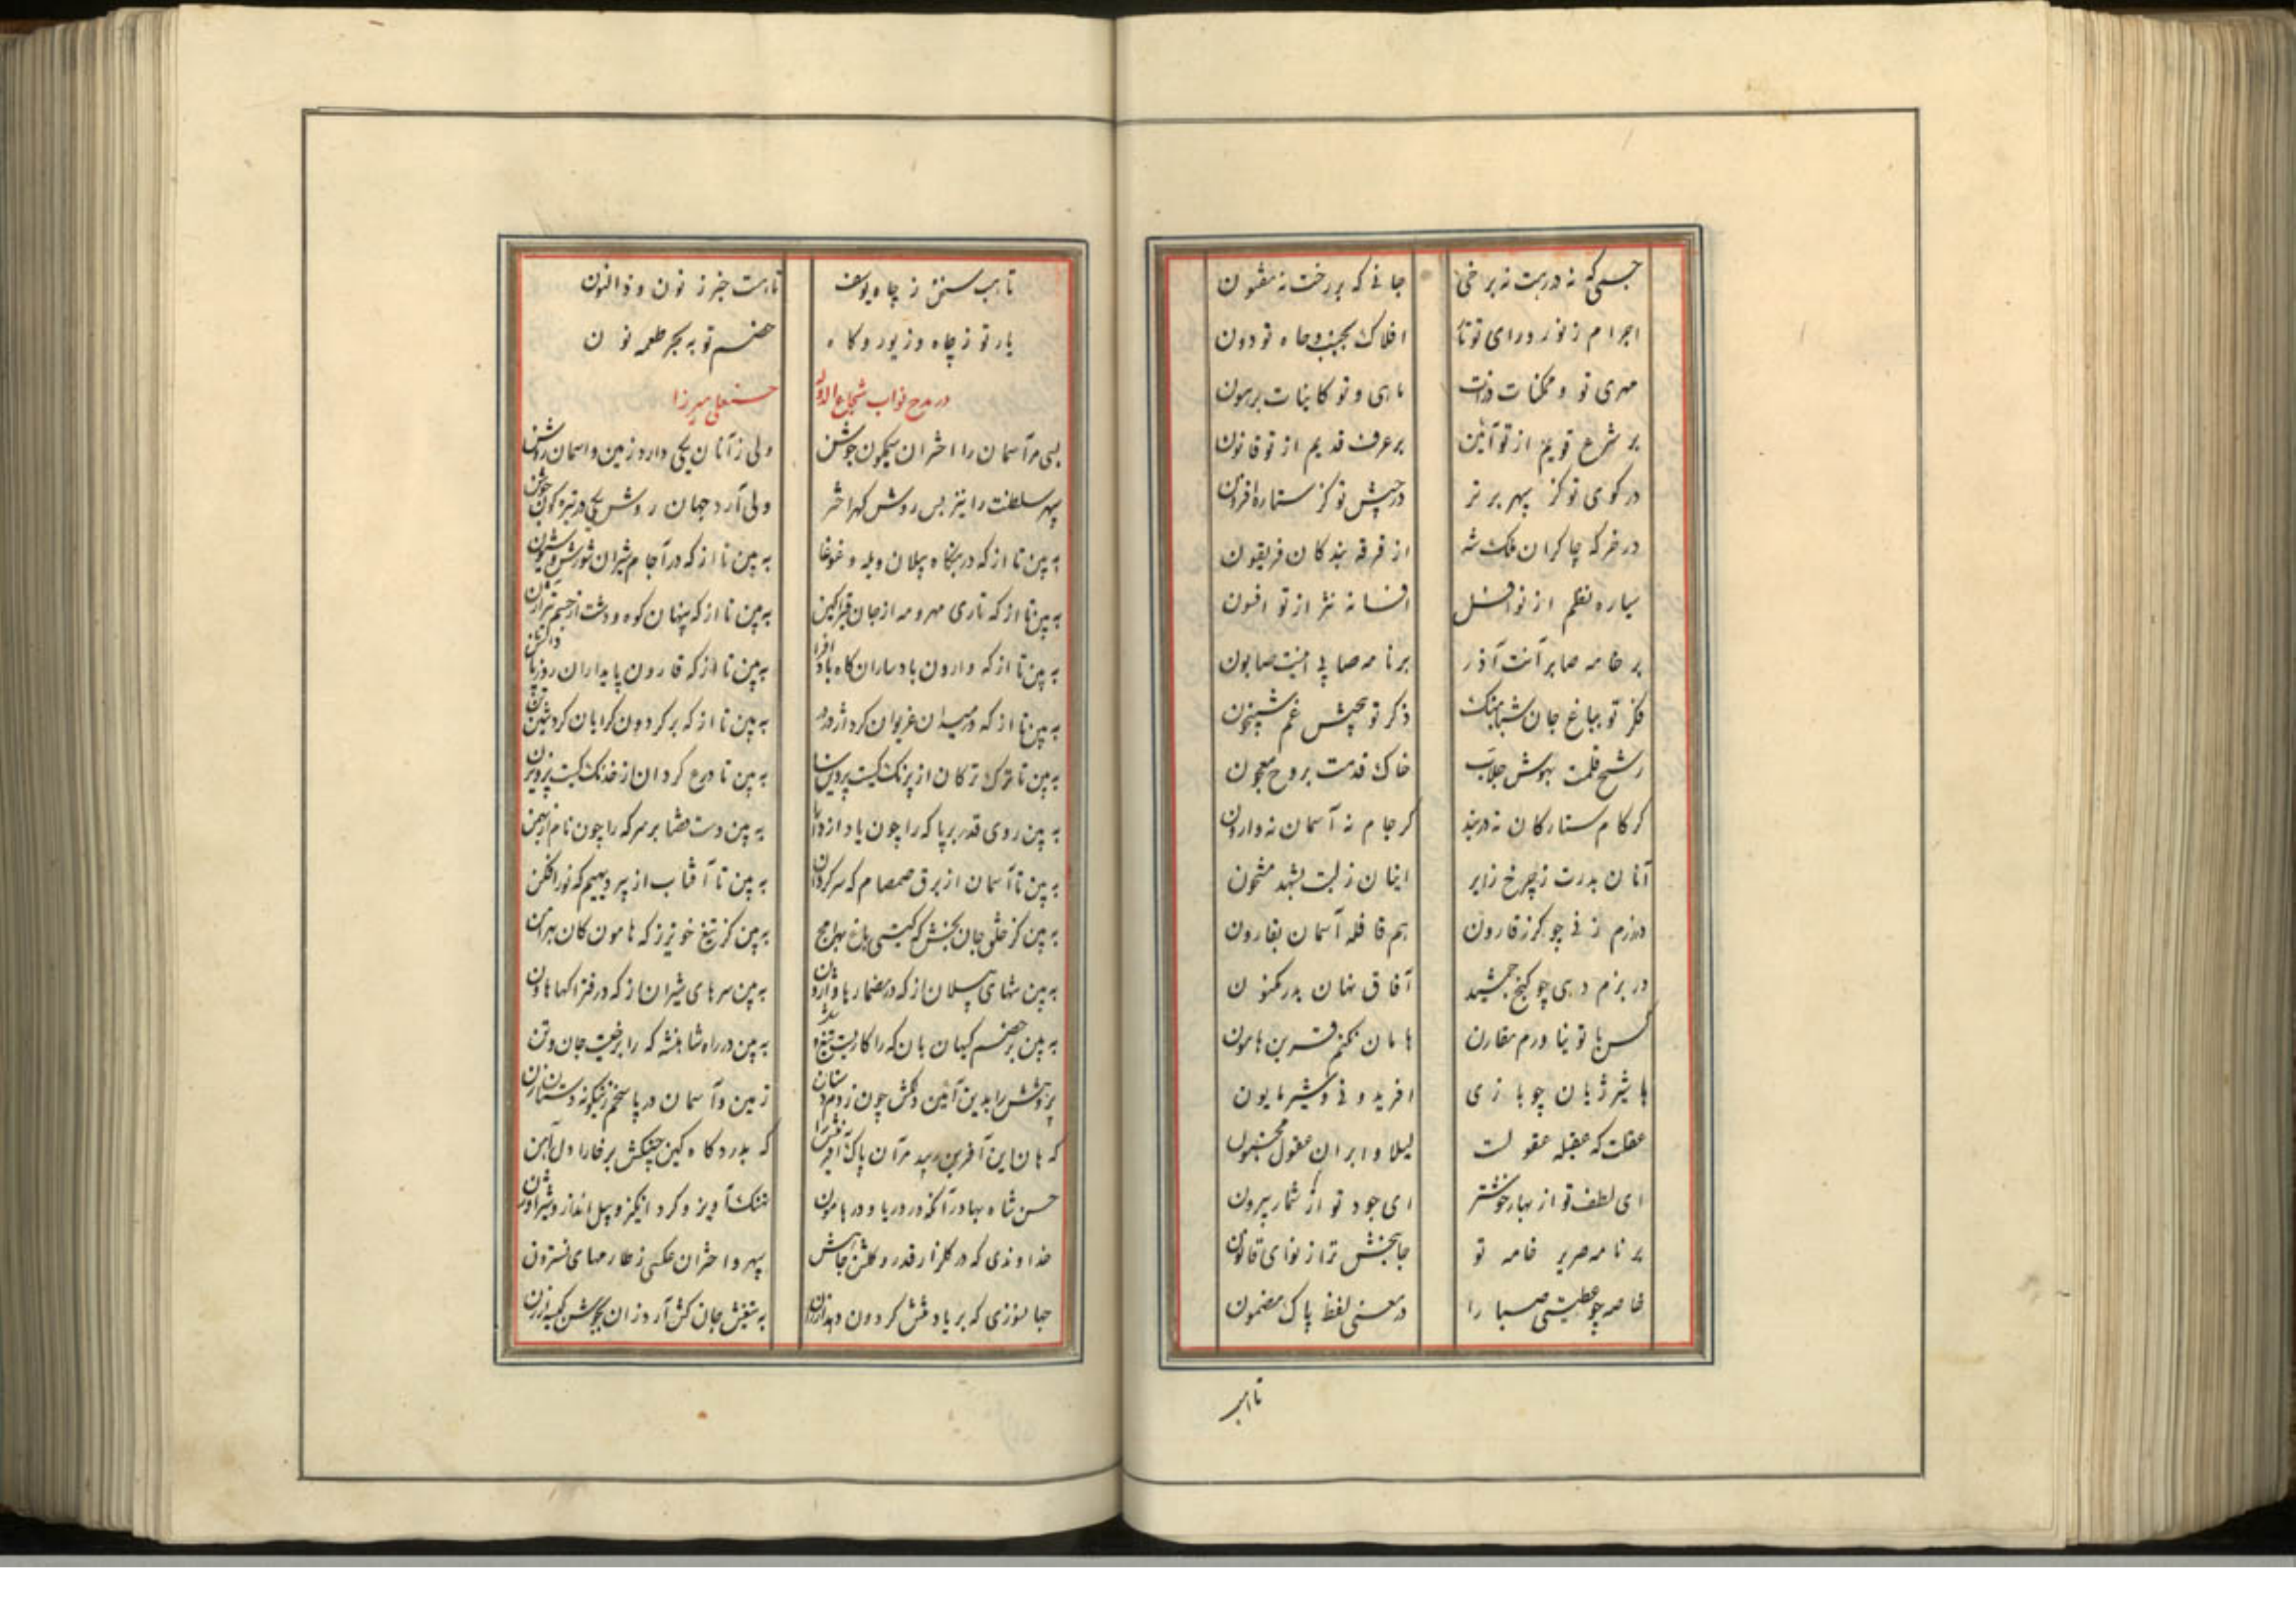 جسمی که نه در رهت نه بر خی جانی که بر رخت نه مفتون
اجرام ز نور و رای تو تا افلاک بجنب و جاه تو دون
مهری تو و ممکنات ذرات ماهی و تو کاینات برهون
بر شرع قویم از تو آئین بر عرف قدیم از تو قانون
در کوی تو کز سپهر برتر در جیش تو کز ستاره افزون
در خرکه چاکران ملک شه از فرقه بندکان فریقون
سیاره نظم از تو افسانه نثر از تو افسون
بر خامه صابر آنت آذر بر نامه صابی اینت صابون
فکر تو بباغ جان شباهنک ذکر تو بجیش غم شبیخون
رشح قلمت بهوش جلاب خاک قدمت بروح معجون
کر کام ستارکان نه در بند کر جام نه آسمان نه وارون
آنان بدرت ز چرخ زایر اینان ز لبت بشهد مشحون
در رزم نی چو کرز قارون هم قافله آسمان بقارون
در بزم دهی چو کنج جمشید آفاق نهان بدر مکنون
کس با تو نیاورم مقارن هامان نکنم قرین هامون
با شیر ژیان چو بازی افریدونی و شیر مایون
عقلت که عقیله عقولست لیلا و ابر آن عقول مجنون
ای لطف تو از بهار خوشتر ای جود تو از شمار بیرون
بر نامه صریر خامه تو جانبخش تر از نوای قانون
خاصه چو عطیتی صبا را در معنی لفظ پاک مضمون
تا هب
تا هب سخن ز چاه یوسف تا هست خبر ز نون و ذالنون
یار تو ز چاه و زیور و کاه خصم تو به بحر طعمه نون
در مدح نواب شجاع الدوله حسنعلی میرزا
بسی مر آسمان را اختران سیمکون جوشن ولی ز آنان یکی دارد زمین و اسمان روشن
سپهر سلطنت را نیز بس روشن کهر اختر ولی آرد جهان روشن یکی در تیره کون جوشن
به بین تا از که در بنکاه پیلان ویله و غوغا به بین تا از که در آجام شیران شورش و شیون
به بین تا از که تاری مهر و مه از جان به بین تا از که پنهان کوه و دشت از جسم
به بین تا از که وارون بادساران کاه باد به بین تا از که قارون پایداران روز
به بین تا از که در میدان غریوان کرد به بین تا از که بر کردون کرایان کرد
به بین تا ترک ترکان از پرنک کیست به بین تا درع کردان از خدنک کیست پرویزن
به بین روی قدر بر پا که را چون یاد از به بین دست قضا بر سر که را چون نام از بهمن
به بین تا آسمان از برق صمصام که سرکردان به بین تا آفتاب از پر دیهیم که نور افکن
به بین کز خلق جان بخش که کیتی باغ به بین کز تیغ خونریز که هامون کان
به بین تنهای پیلان از که در مضمارها وارون به بین سرهای شیران از که در فتراکها
به بین بر خصم کیهان بان که را کاریست به بین در راه شاهنشه که را برخیست جان و تن
پژوهش را بدین آئین دلکش چون زدم زمین و آسمان در پاسخم زینکونه
که هان این آفرین زیبد مر آن پاک آفرینش را که بدرد کاه کین چنکش بر خارا دل آهن
حسن شاه بهادر آنکه در دریا و در هامون نهنک آویز و کرد انکیز و پیل انداز و شیر اوژن
خداوندی که در کلزار قدر و کلشن جاهش سپهر و اختران عکسی ز خار و های نسترون
جهانسوزی که بر یاد کردون دهد به تیغش جان کش آرد زان بجوش